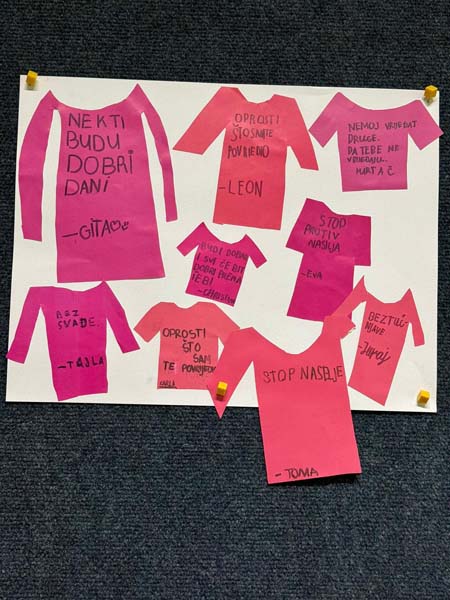 NEK TI
BUDU
DOBRI
DANI
-GITA
OPROSTI
ŠTO SAM TE
POVRIJEDIO
-LEON
NEMOJ VRIJEĐAT
DRUGE.
DA TEBE NE
VRIJEĐAJU.
MRTA Č.
BUDI DOBAR
I SVI ĆE BIT
DOBRI PREMA
TEBI
STOP
PROTIV
NASILJA
-EVA
BEZ
SVAĐE.
-TAJLA
OPROSTI
ŠTO
SAM
TE POVRIJEDIO
CARLA
STOP NASILJE
-TOMA
-Juraj